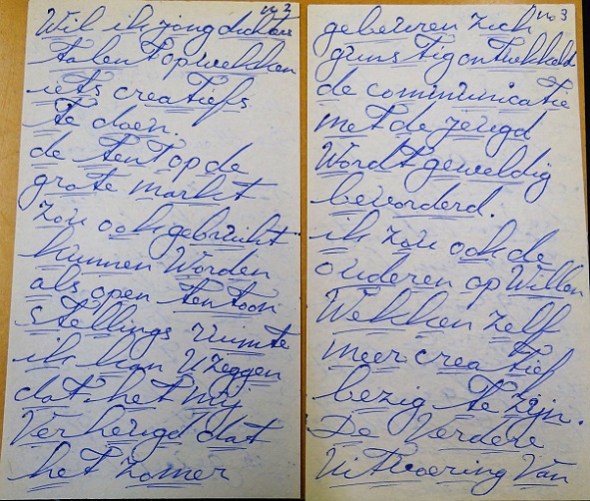 no 2
Wil ik jong dichters
talent opwekken
iets creatiefs
te doen.
de tent op de
grote markt
zou ook gebruikt
kunnen worden
als open tentoon
stellings ruimte
ik kan U zeggen
dat het mij
verheugd dat
het zomer
no 3
gebeuren zich
gunstig ontwikkeld
de communicatie
met de jeugd
wordt geweldig
bevorderd.
ik zou ook de
ouderen op willen
wekken zelf
meer creatief
bezig te zijn.
De verdere
uitvoering van